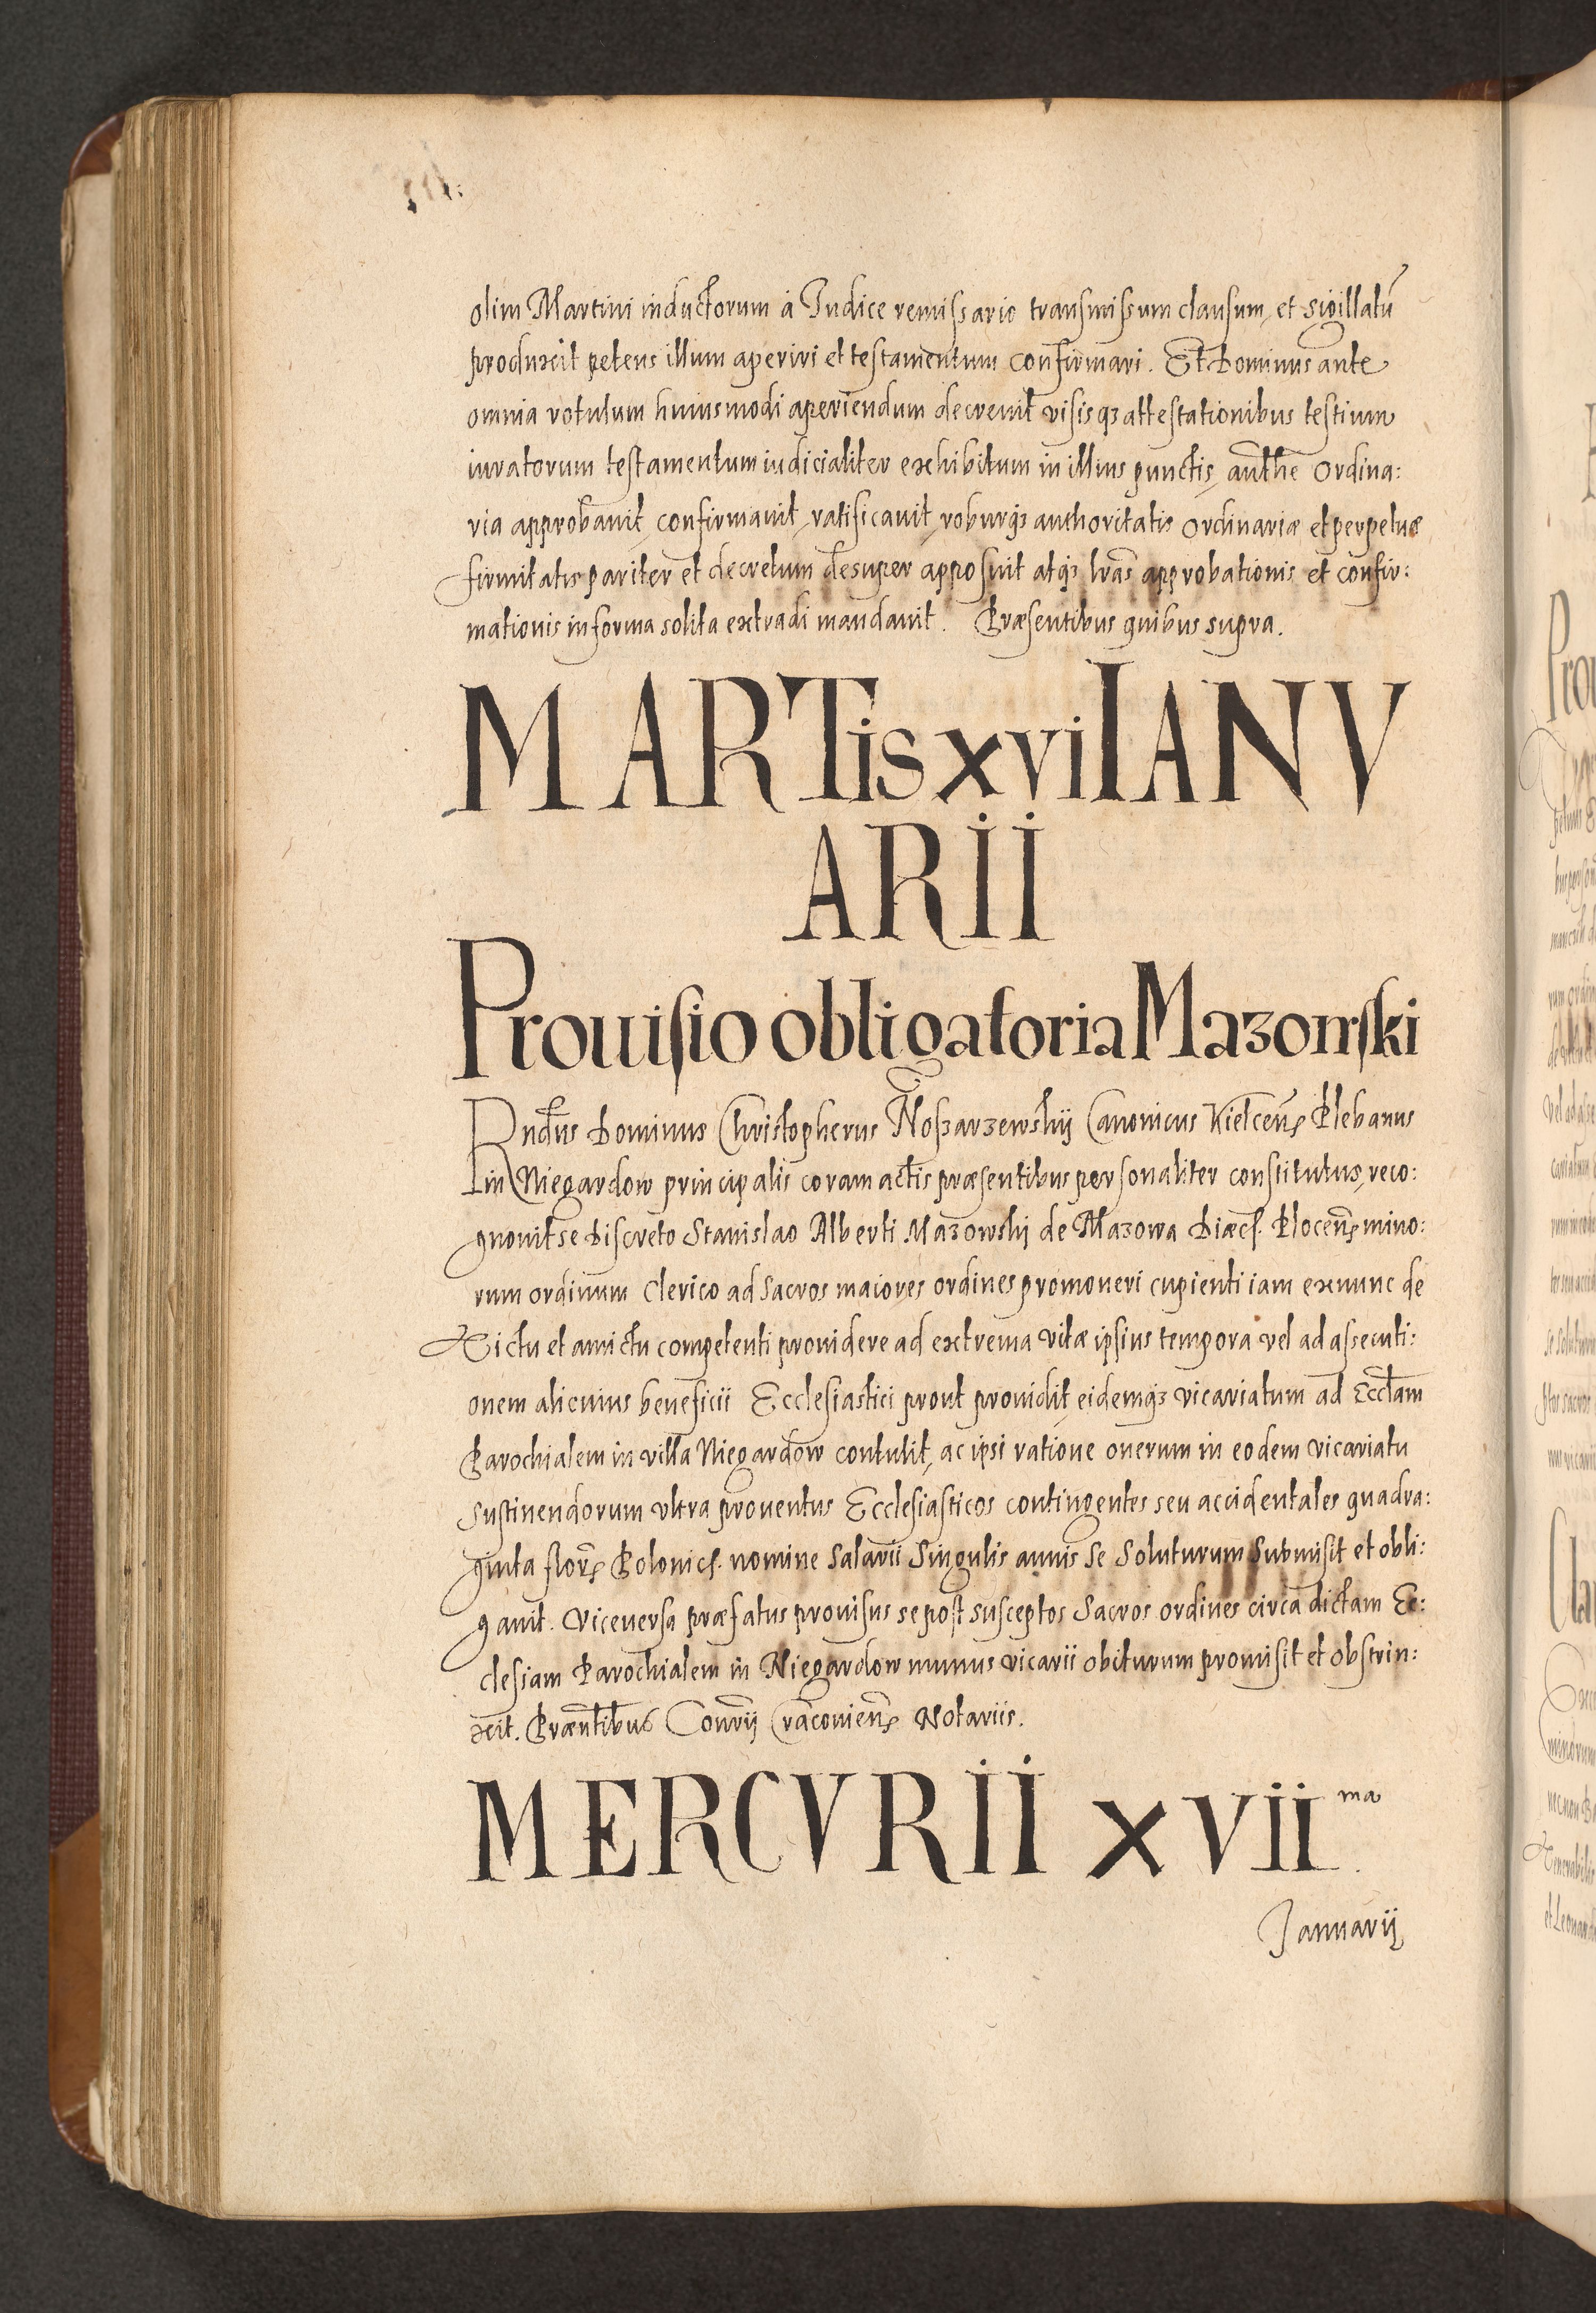 olim Martini inductorum à Iudice remissario transmissum clausum, et sigillatũ
produxit petens illum aperiri et testamentum confirmari. Et Dominus ante
omnia rotulum huiusmodi aperiendum decreuit visisqꝫ attestationibus testium
iuratorum testamentum iudicialiter exhibitum in illius punctis, authẽ Ordina:
ria approbauit, confirmauit, ratificauit, roburqꝫ authoritatis Ordinariæ et perpetuæ
firmitatis pariter et decretum desuper apposuit atqꝫ lrãs approbationis et confir:
mationis in forma solita extradi mandauit. Præsentibus quibus supra.
MARTis xvi IANV
ARII
Prouisio obligatoria Mazowski
Rndus Dominus Christopherus Noszarzewskij Canonicus Kielceñ Plebanus
in Niegardow principalis coram actis præsentibus personaliter constitutus, reco:
gnouit se Discreto Stanislao Alberti Mazowskj de Mazowa Diæcs. Ploceñ mino:
rum ordinum Clerico ad Sacros maiores ordines promoueri cupienti iam exnunc de
Victu et amictu competenti prouidere ad extrema vitæ ipsius tempora vel ad assecuti:
onem alicuius beneficii Ecclesiastici prout prouidit, eidemqꝫ vicariatum ad Eccłam
Parochialem in villa Niegardow contulit, ac ipsi ratione onerum in eodem vicariatu
Sustinendorum vltra prouentus Ecclesiasticos contingentes seu accidentales quadra:
ginta floreñ Polonics. nomine Salarii Singulis annis Se Soluturum Submisit et obli:
gauit. Viceuersa præfatus prouisus se post susceptos Sacros ordines circa dictam Ec:
clesiam Parochialem in Niegardow munus vicarii obiturum promisit et obstrin:
xit. Præntibus Conrij Cracouieñ Notariis.
MERCVRII XVII ma.
Januarij